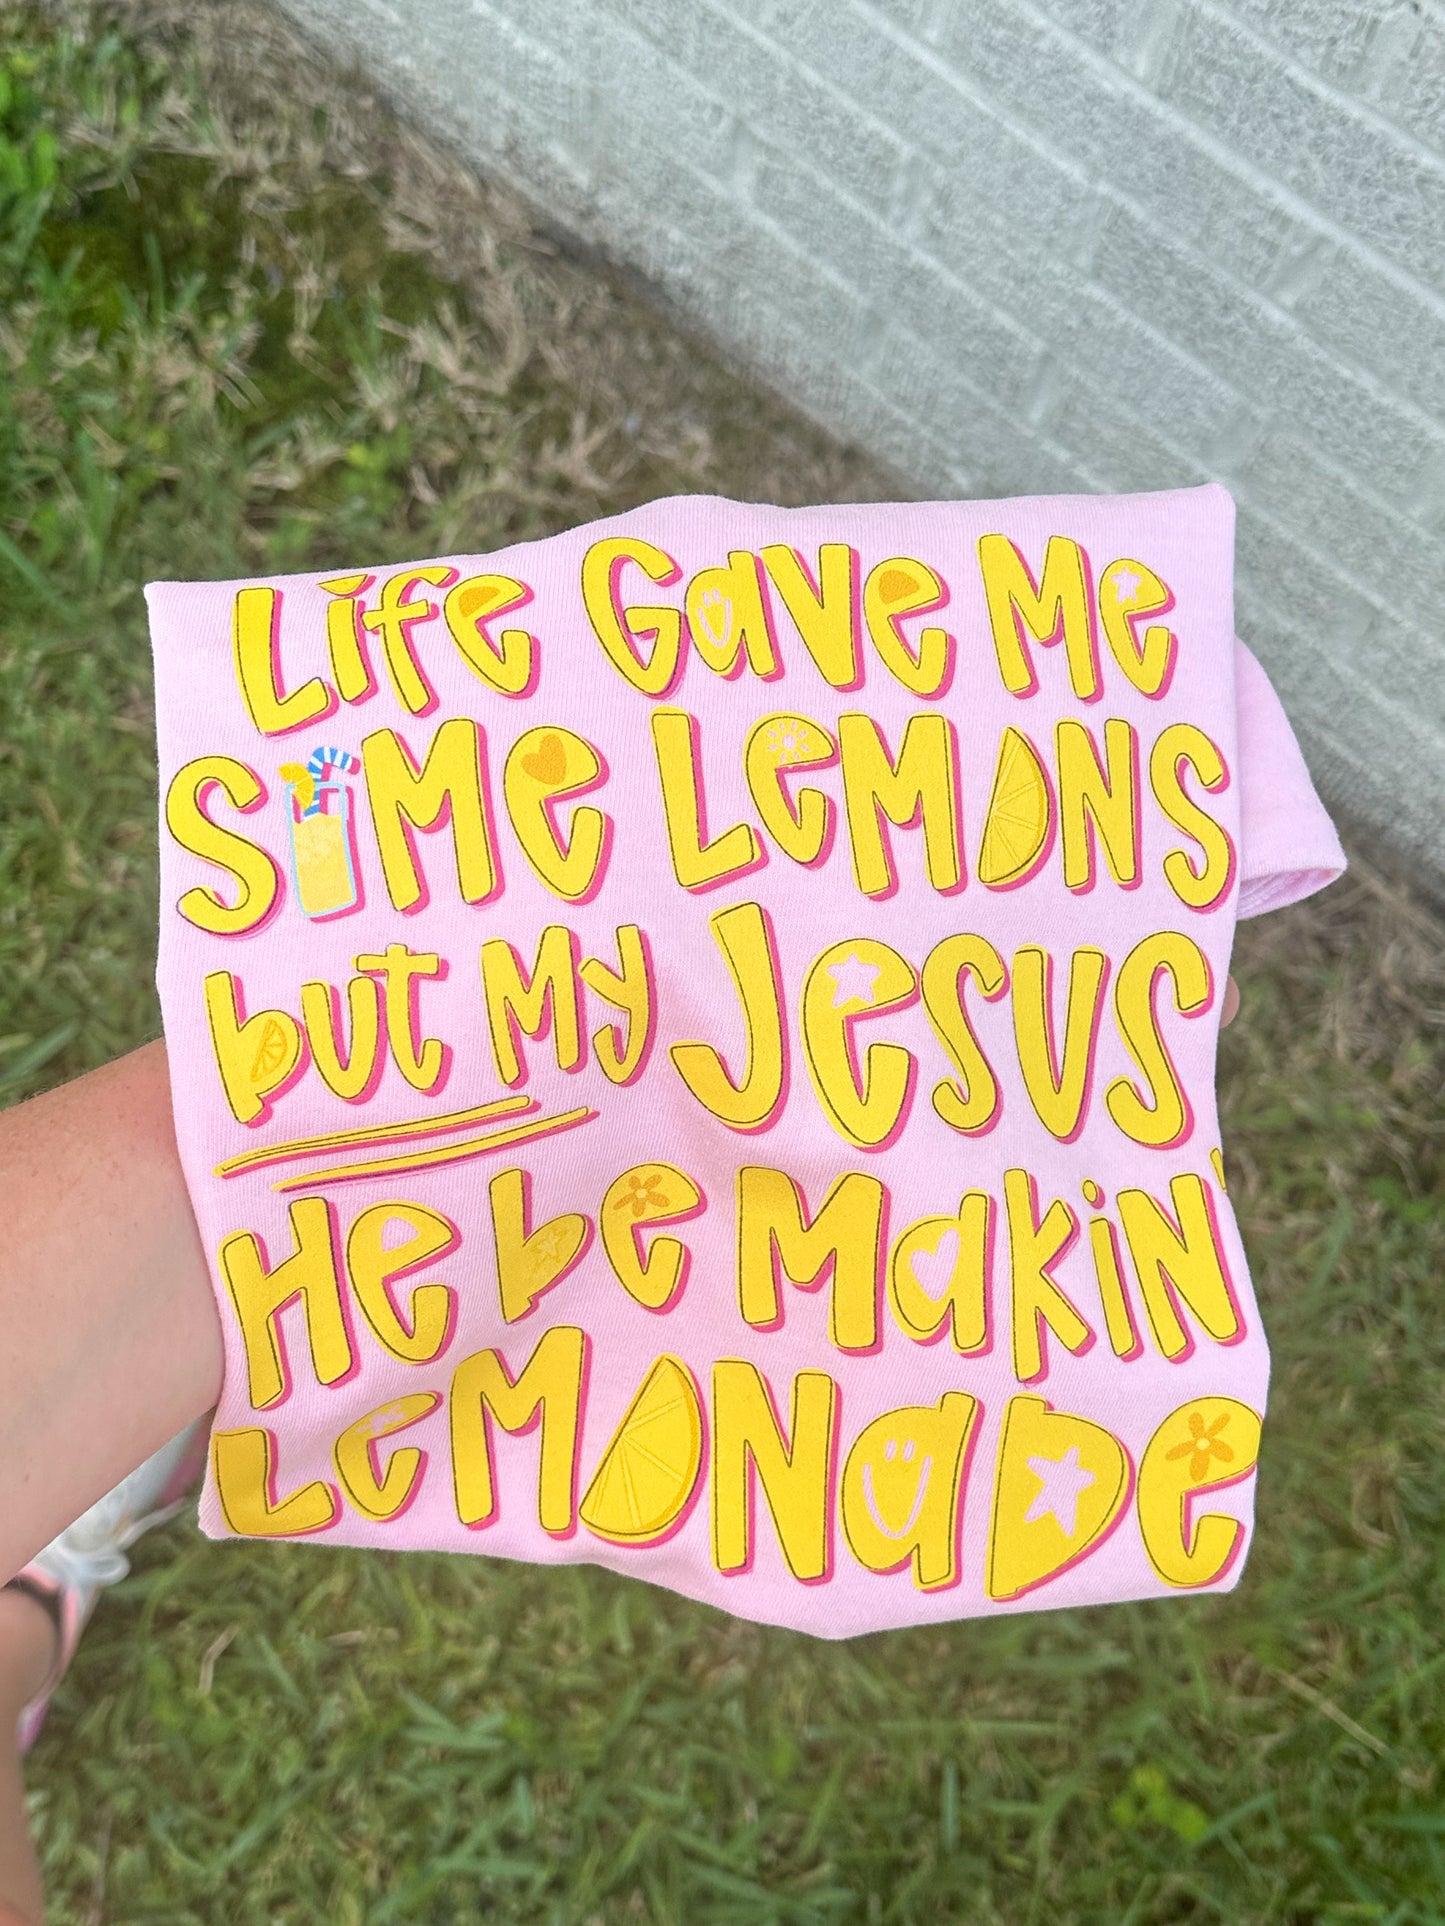 Life Gave Me
Some Lemons
but My Jesus
He be Makin'
Lemonade